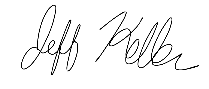 Jeff Keller